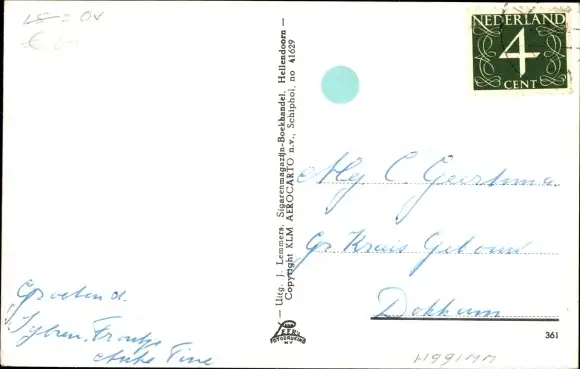 NEDERLAND
4
CENT
— Uitg. J. Lemmers, Sigarenmagazijn-Boekhandel, Hellendoorn —
Copyright KLM AEROCARTO n.v., Schiphol, no 41629
Mej C. Geertsma.
Gr. Kruis Gebouw
Dokkum
Groeten d.
Sybren, Froukje
Tine
FOTODRUKKERIJ
N.V.
361